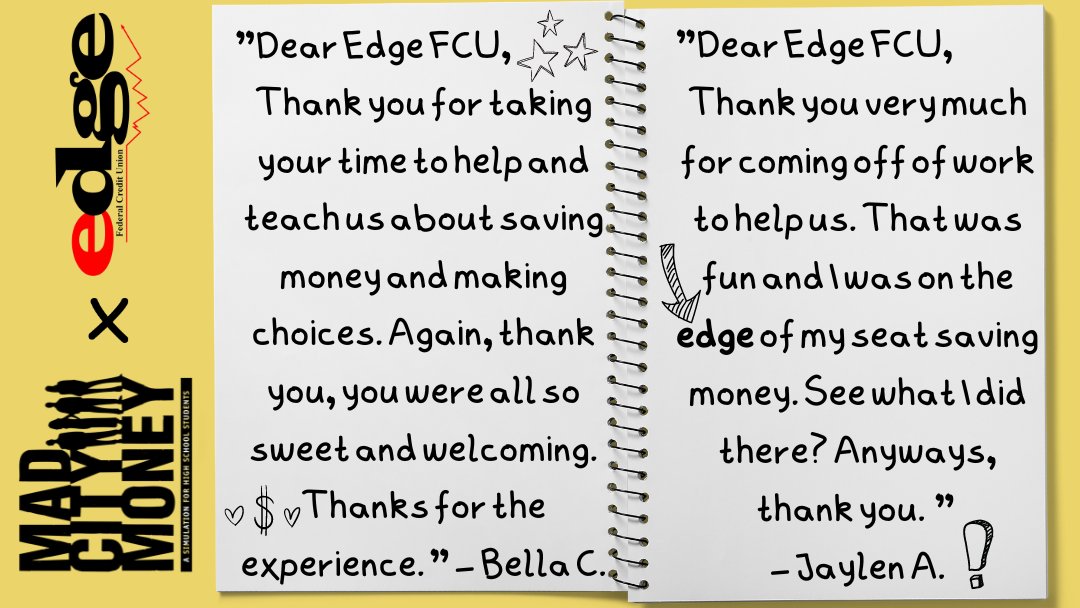 edge
Federal Credit Union
x
MAD
CITY
MONEY
A SIMULATION FOR HIGH SCHOOL STUDENTS
”Dear Edge FCU,
Thank you for taking
your time to help and
teach us about saving
money and making
choices. Again, thank
you, you were all so
sweet and welcoming.
$ Thanks for the
experience.” – Bella C.
”Dear Edge FCU,
Thank you very much
for coming off of work
to help us. That was
fun and I was on the
edge of my seat saving
money. See what I did
there? Anyways,
thank you. ”
– Jaylen A. !